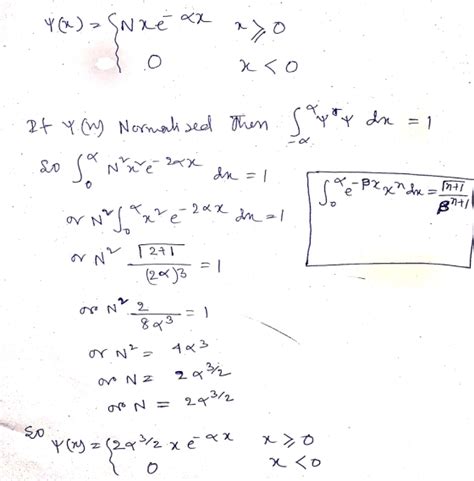 ψ(x) = { N x e^{-αx} x ⩾ 0
0 x < 0
If ψ(x) Normalised then ∫_{-α}^{α} ψ*ψ dx = 1
So ∫_0^α N²x²e^{-2αx} dx = 1
or N² ∫_0^α x² e^{-2αx} dx = 1
∫_0^α e^{-βx} x^n dx = Γn+1 / β^{n+1}
or N² Γ2+1 / (2α)³ = 1
or N² 2 / 8α³ = 1
or N² = 4α³
or N = 2α^{3/2}
or N = 2α^{3/2}
So
ψ(x) = { 2α^{3/2} x e^{-αx} x ⩾ 0
0 x < 0